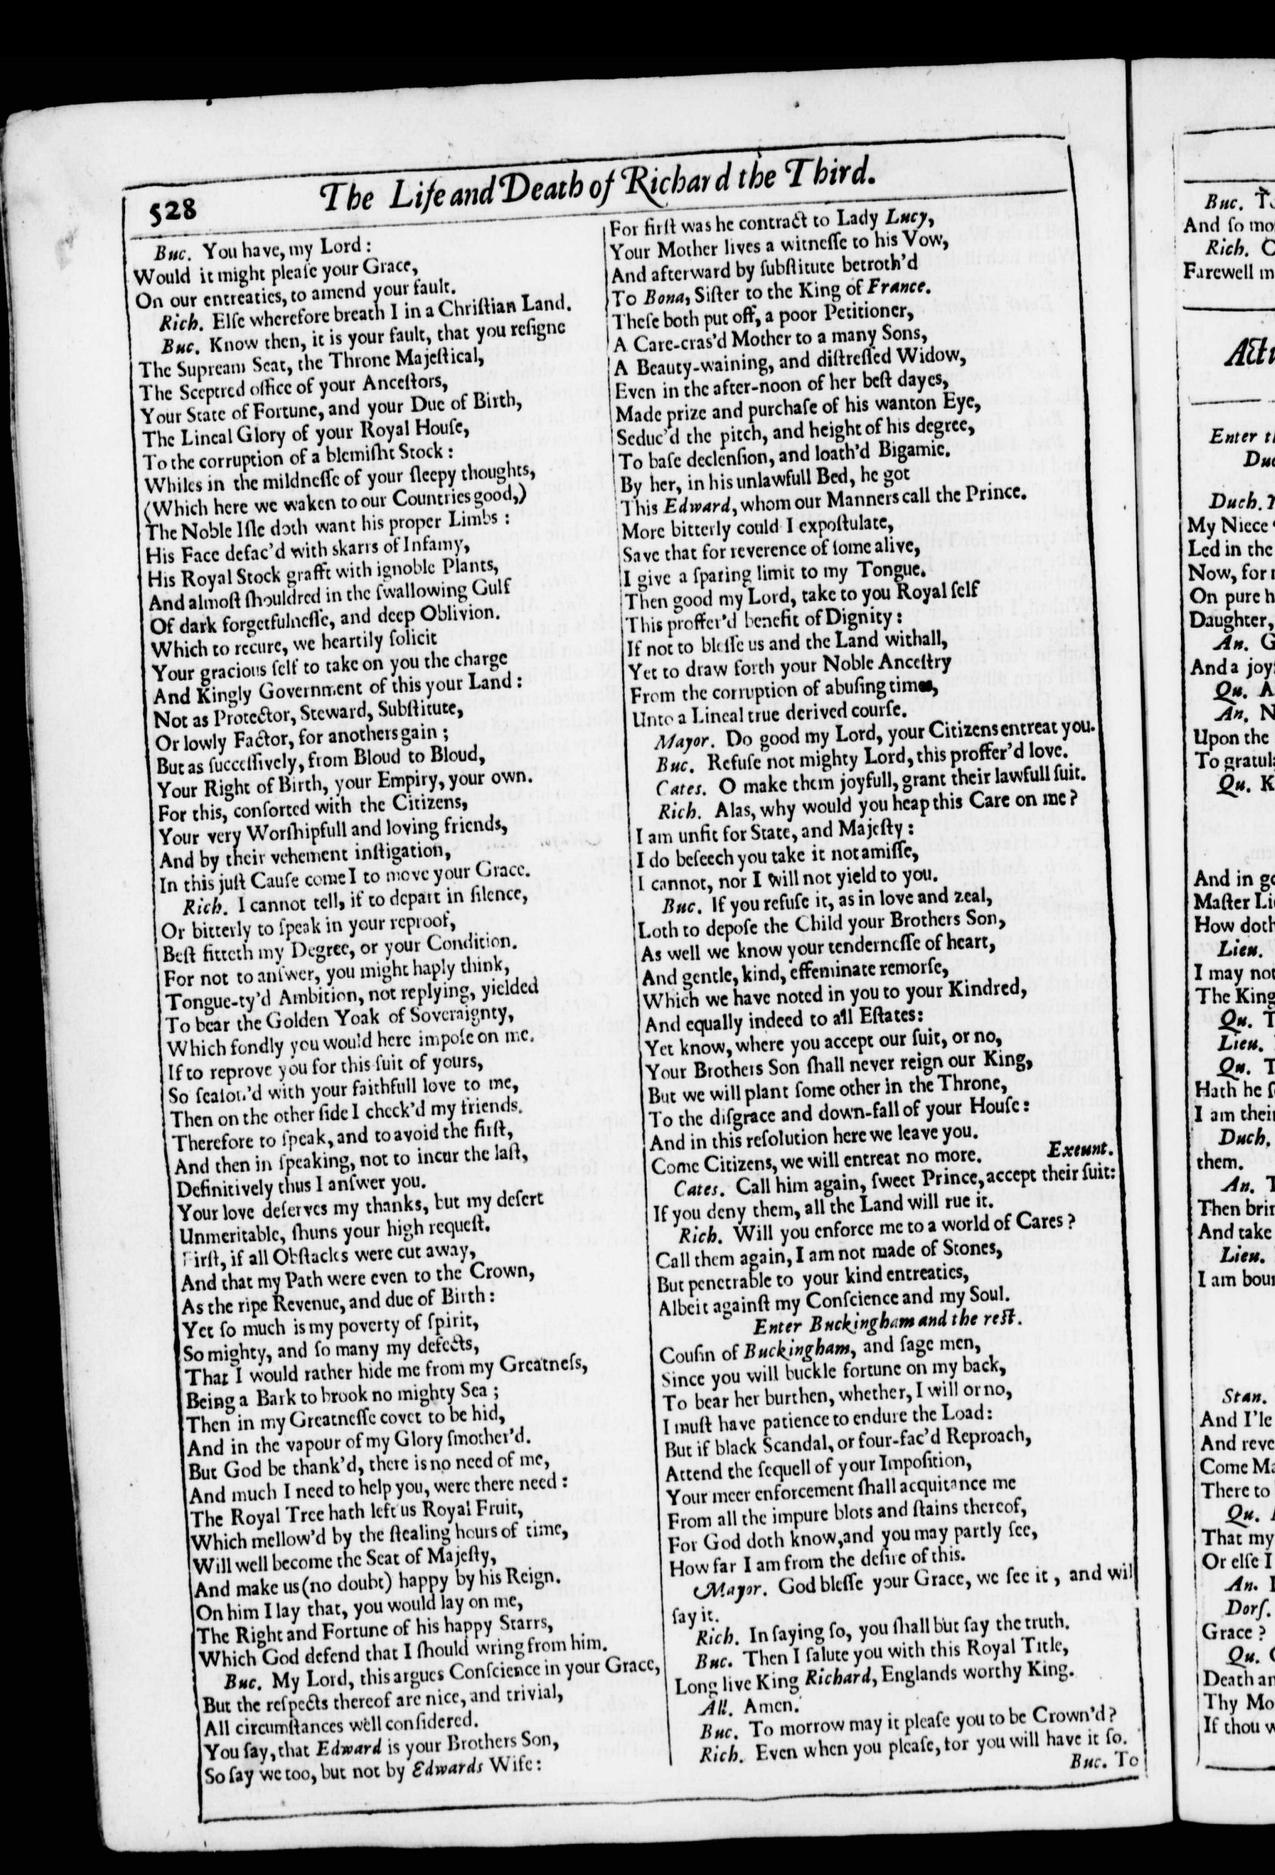 528
The Life and Death of Richard the Third.
Buc. You have, my Lord:
Would it might pleaſe your Grace,
On our entreaties, to amend your fault.
Rich. Elſe wherefore breath I in a Chriſtian Land.
Buc. Know then, it is your fault, that you reſigne
The Supream Seat, the Throne Majeſtical,
The Sceptred office of your Anceſtors,
Your State of Fortune, and your Due of Birth,
The Lineal Glory of your Royal Houſe,
To the corruption of a blemiſht Stock:
Whiles in the mildneſſe of your ſleepy thoughts,
(Which here we waken to our Countries good,)
The Noble Iſle doth want his proper Limbs:
His Face defac'd with skarrs of Infamy,
His Royal Stock grafft with ignoble Plants,
And almoſt ſhouldred in the ſwallowing Gulf
Of dark forgetfulneſſe, and deep Oblivion.
Which to recure, we heartily ſolicit
Your gracious ſelf to take on you the charge
And Kingly Government of this your Land:
Not as Protector, Steward, Subſtitute,
Or lowly Factor, for anothers gain;
But as ſucceſſively, from Bloud to Bloud,
Your Right of Birth, your Empiry, your own.
For this, conſorted with the Citizens,
Your very Worſhipfull and loving friends,
And by their vehement inſtigation,
In this juſt Cauſe come I to move your Grace.
Rich. I cannot tell, if to depart in ſilence,
Or bitterly to ſpeak in your reproof,
Beſt fitteth my Degree, or your Condition.
For not to anſwer, you might haply think,
Tongue-ty'd Ambition, not replying, yielded
To bear the Golden Yoak of Soveraignty,
Which fondly you would here impoſe on me.
If to reprove you for this ſuit of yours,
So ſeaſon'd with your faithfull love to me,
Then on the other ſide I check'd my friends.
Therefore to ſpeak, and to avoid the firſt,
And then in ſpeaking, not to incur the laſt,
Definitively thus I anſwer you.
Your love deſerves my thanks, but my deſert
Unmeritable, ſhuns your high requeſt.
Firſt, if all Obſtacks were cut away,
And that my Path were even to the Crown,
As the ripe Revenue, and due of Birth:
Yet ſo much is my poverty of ſpirit,
So mighty, and ſo many my defects,
That I would rather hide me from my Greatneſs,
Being a Bark to brook no mighty Sea;
Then in my Greatneſſe covet to be hid,
And in the vapour of my Glory ſmother'd.
But God be thank'd, there is no need of me,
And much I need to help you, were there need:
The Royal Tree hath left us Royal Fruit,
Which mellow'd by the ſtealing hours of time,
Will well become the Seat of Majeſty,
And make us (no doubt) happy by his Reign.
On him I lay that, you would lay on me,
The Right and Fortune of his happy Starrs,
Which God defend that I ſhould wring from him.
Buc. My Lord, this argues Conſcience in your Grace,
But the reſpects thereof are nice, and trivial,
All circumſtances well conſidered.
You ſay, that Edward is your Brothers Son,
So ſay we too, but not by Edwards Wife:
For firſt was he contract to Lady Lucy,
Your Mother lives a witneſſe to his Vow,
And afterward by ſubſtitute betroth'd
To Bona, Siſter to the King of France.
Theſe both put off, a poor Petitioner,
A Care-cras'd Mother to a many Sons,
A Beauty-waining, and diſtreſſed Widow,
Even in the after-noon of her beſt dayes,
Made prize and purchaſe of his wanton Eye,
Seduc'd the pitch, and height of his degree,
To baſe declenſion, and loath'd Bigamie.
By her, in his unlawfull Bed, he got
This Edward, whom our Manners call the Prince.
More bitterly could I expoſtulate,
Save that for reverence of ſome alive,
I give a ſparing limit to my Tongue.
Then good my Lord, take to you Royal ſelf
This proffer'd benefit of Dignity:
If not to bleſſe us and the Land withall,
Yet to draw forth your Noble Anceſtry
From the corruption of abuſing time,
Unto a Lineal true derived courſe.
Mayor. Do good my Lord, your Citizens entreat you.
Buc. Refuſe not mighty Lord, this proffer'd love.
Cates. O make them joyfull, grant their lawfull ſuit.
Rich. Alas, why would you heap this Care on me?
I am unfit for State, and Majeſty:
I do beſeech you take it not amiſſe,
I cannot, nor I will not yield to you.
Buc. If you refuſe it, as in love and zeal,
Loth to depoſe the Child your Brothers Son,
As well we know your tenderneſſe of heart,
And gentle, kind, effeminate remorſe,
Which we have noted in you to your Kindred,
And equally indeed to all Eſtates:
Yet know, where you accept our ſuit, or no,
Your Brothers Son ſhall never reign our King,
But we will plant ſome other in the Throne,
To the diſgrace and down-fall of your Houſe:
And in this reſolution here we leave you.
Come Citizens, we will entreat no more. Exeunt.
Cates. Call him again, ſweet Prince, accept their ſuit:
If you deny them, all the Land will rue it.
Rich. Will you enforce me to a world of Cares?
Call them again, I am not made of Stones,
But penetrable to your kind entreaties,
Albeit againſt my Conſcience and my Soul.
Enter Buckingham and the reſt.
Couſin of Buckingham, and ſage men,
Since you will buckle fortune on my back,
To bear her burthen, whether, I will or no,
I muſt have patience to endure the Load:
But if black Scandal, or four-fac'd Reproach,
Attend the ſequell of your Impoſition,
Your meer enforcement ſhall acquitance me
From all the impure blots and ſtains thereof,
For God doth know, and you may partly ſee,
How far I am from the deſire of this.
Mayor. God bleſſe your Grace, we ſee it, and wil
ſay it.
Rich. In ſaying ſo, you ſhall but ſay the truth.
Buc. Then I ſalute you with this Royal Title,
Long live King Richard, Englands worthy King.
All. Amen.
Buc. To morrow may it pleaſe you to be Crown'd?
Rich. Even when you pleaſe, for you will have it ſo.
Buc. To
Buc.
And ſo mo
Rich.
Farewell m
Enter
Duch.
My Niece
Led in the
Now, for
On pure h
Daughter,
An. G
And a joy
Qu. A
An. N
Upon the
To gratul
Qu. K
And in
Maſter
How doth
Lieu.
I may not
The King
Qu. T
Lieu.
Qu. T
Hath he
I am their
Duch.
them.
An. T
Then
And take
Lieu.
I am
Stan.
And I'le
And reve
Come
There to
Qu.
That my
Or elſe I
An.
Dorſ.
Grace?
Qu.
Death
Thy Mo
If thou